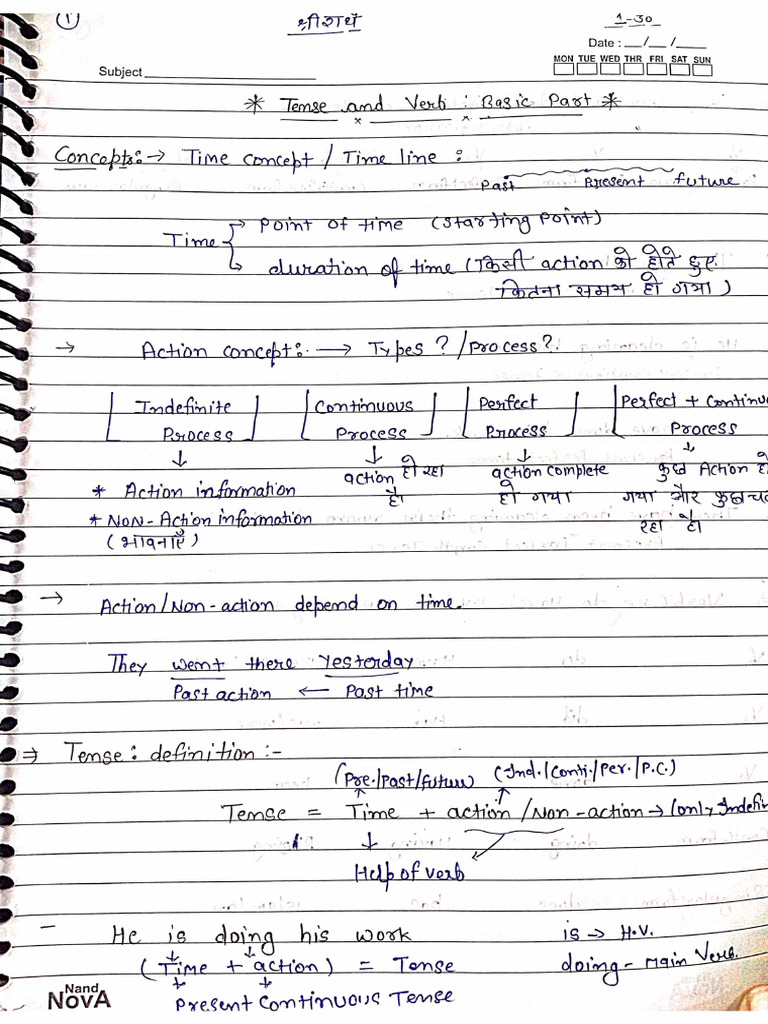 1
श्रीराधे
1-30
Date : __/__/__
MON TUE WED THR FRI SAT SUN
Subject
* Tense and Verb : Basic Part *
Concepts:→ Time concept / Time line :
Past Present future
Time
Point of time (Starting Point)
duration of time (किसी action को होते हुए
कितना समय हो गया)
→ Action concept:. → Types ? /Process?.
Indefinite Process
Continuous Process
Perfect Process
Perfect + Continuo Process
* Action information
* Non-Action information
(भावनाएँ)
action हो रहा है
action complete हो गया
कुछ Action हो गया और कुछ चल रहा है
→ Action/Non-action depend on time.
They went there yesterday
Past action ← Past time
⇒ Tense : definition :-
(Pre./Past/future) (Ind./Conti./Per./P.C.)
Tense = Time + action /Non-action → (only Indefi
Help of verb
- He is doing his work is → H.V.
(Time + action) = Tense doing - Main Verb.
Present Continuous Tense
Nand
NovA